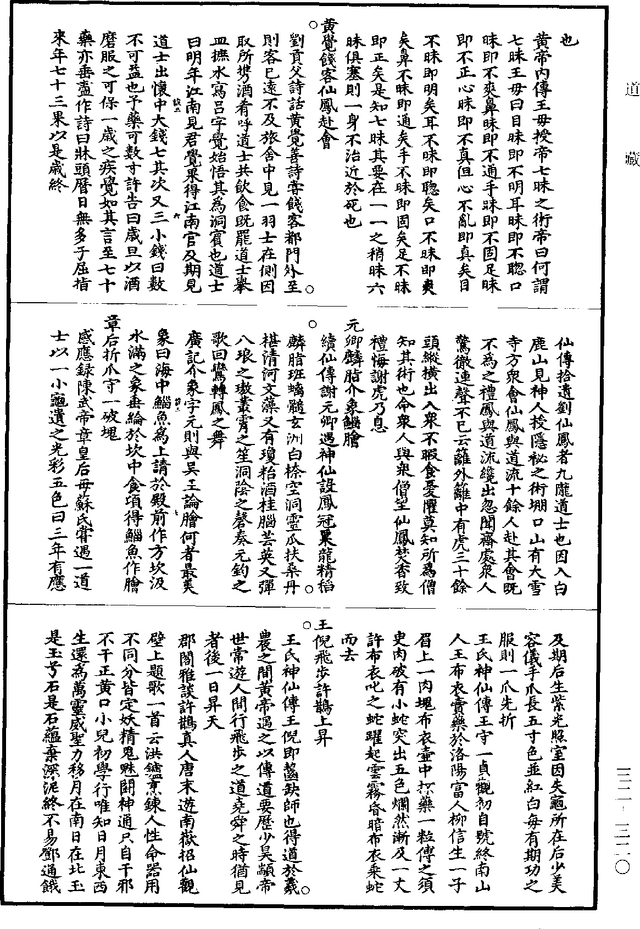 道藏
也
黃帝內傳王母授帝七昧之術帝曰何謂
七昧王母曰目昧即不明耳昧即不聰口
昧即不爽鼻昧即不通手昧即不固足昧
即不正心昧即不真但心不亂即真矣目
不昧即明矣耳不昧即聰矣口不昧即爽
矣鼻不昧即通矣手不昧即固矣足不昧
即正矣是知七昧其要在一一之稍昧六
昧俱塞則一身不治近於死也
黃覺餞客仙鳳赴會
劉貢父詩話黃覺善詩嘗餞客都門外至
則客已遠不及旅舍中見一羽士在側因
取所携酒肴呼道士共飲食既罷道士舉
皿摭水寫呂字覺始悟其為洞賓也道士
曰明年江南見君覺果得江南官及期見
道士出懷中大錢七其次又三小錢曰數
不可益也予藥可數寸許告曰歲旦以酒
磨服之可保一歲之疾覺如其言至七十
藥亦垂盡作詩曰牀頭曆日無多子屈指
來年七十三果以是歲終
仙傳拾遺劉仙鳳者九隴道士也因入白
鹿山見神人授隱秘之術堋口山有大雪
寺方眾會仙鳳與道流十餘人赴其會既
不為之禮鳳與道流纔出忽聞齋處眾人
驚徹連聲不已云籬外籬中有虎三十餘
頭縱橫出入眾不暇食憂懼莫知所為僧
知其術也命眾人與眾僧望仙鳳焚香致
禮悔謝虎乃息
元卿麟脂介象鯔膾
續仙傳謝元卿遇神仙設鳳冠粟龍精稻
麟脂班螭髓玄洲白㮈空洞靈瓜扶桑丹
椹清河文藻又有瓊粭酒桂腦芸英又彈
八琅之璈叢霄之笙洞陰之磬奏元鈞之
歌回鸞轉鳳之舞
廣記介象字元則與吳王論膾何者最美
象曰海中鯔魚為上請於殿前作方坎汲
水滿之象垂綸於坎中食頃得鯔魚作膾
章后折爪守一破塊
感應錄陳武帝章皇后母蘇氏嘗遇一道
士以一小龜遺之光彩五色曰三年有應
及期后生紫光照室因失龜所在后少美
容儀手爪長五寸色並紅白每有期功之
服則一爪先折
王氏神仙傳王守一貞觀初自號終南山
人王布衣賣藥於洛陽富人柳信生一子
眉上一肉塊布衣壺中探藥一粒傅之須
臾肉破有小蛇突出五色爛然漸及一丈
許布衣叱之蛇躍起雲霧昏暗布衣乘蛇
而去
王倪飛步許鵲上昇
王氏神仙傳王倪即齧缺師也得道於羲
農之間黃帝遇之以傳道要歷少昊顓帝
世常遊人間行飛步之道堯舜之時猶見
者後一日昇天
郡閣雅談許鵲真人唐末遊南嶽招仙觀
壁上題歌一首云洪鑪烹鍊人性命器用
不同分皆定妖精鬼魅鬪神通只自干邪
不干正黃口小兒初學行唯知日月東西
生還為萬靈威聖力移月在南日在北玉
是玉兮石是石蘊棄深泥終不易鄧通餓
三二-三二〇